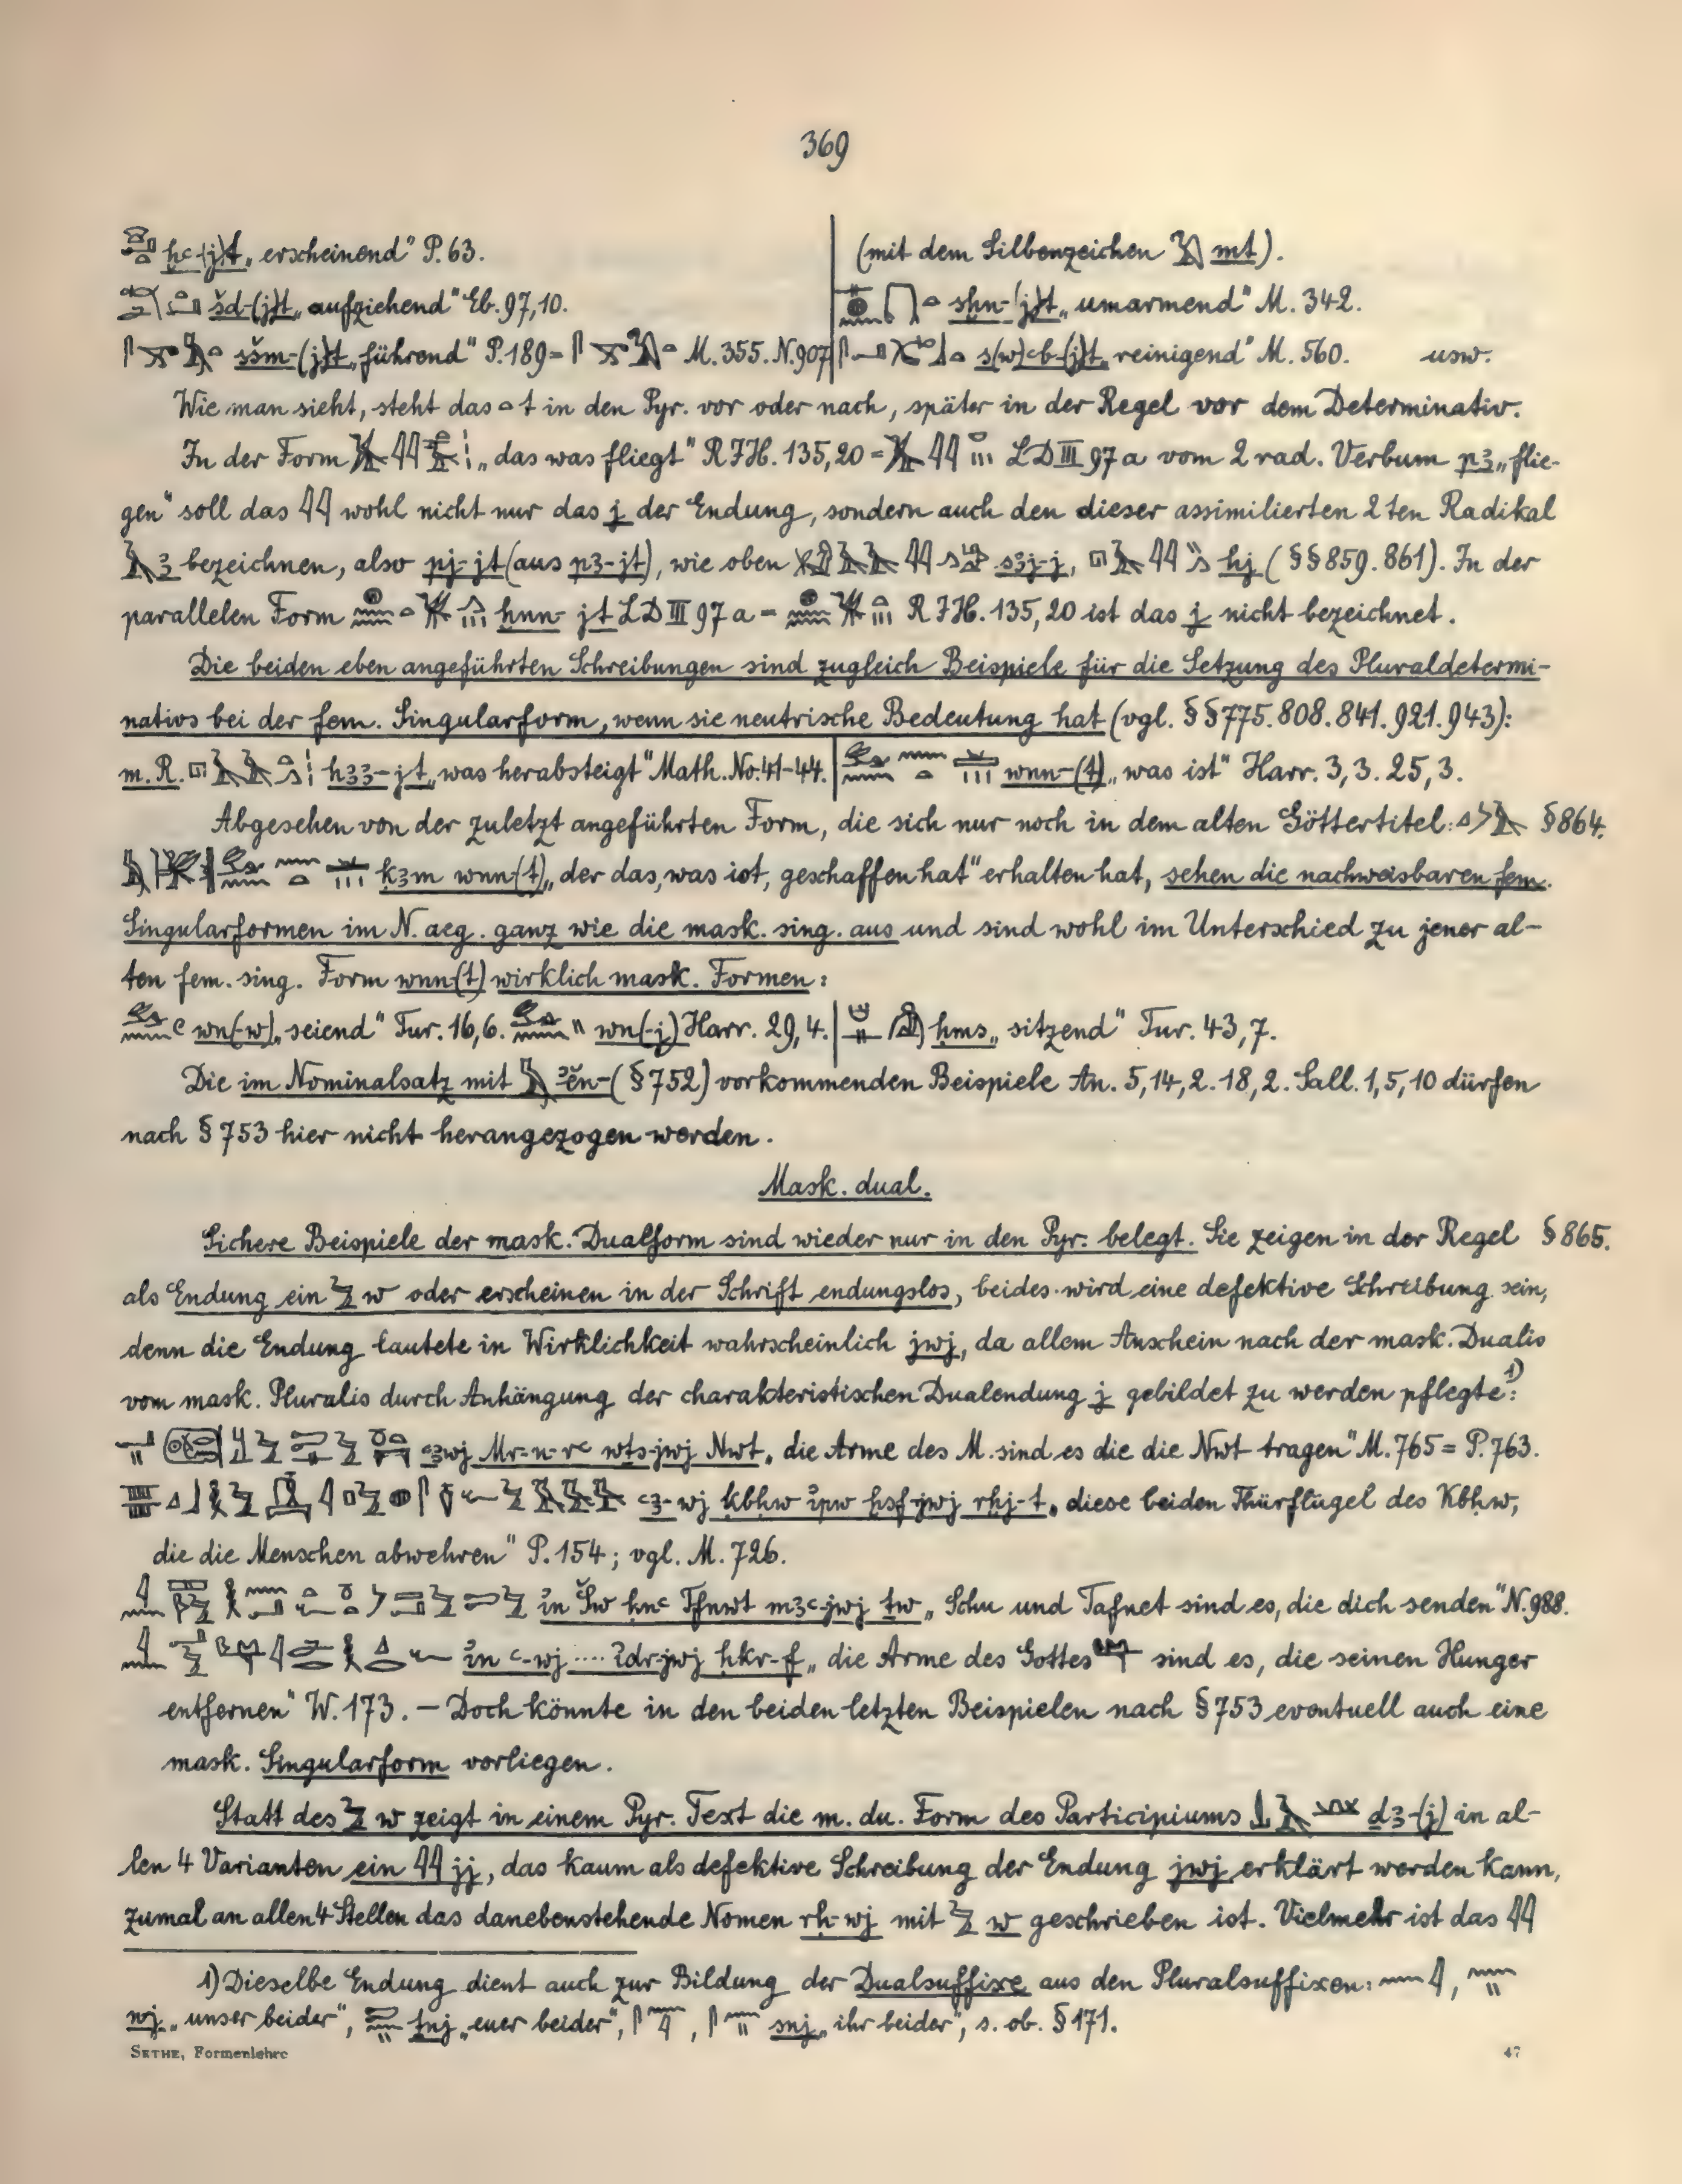 369
ḫꜥ-(j)t „erscheinend" P. 63.
šd-(j)t „aufziehend" Eb. 97,10.
sšm-(j)t „führend" P. 189 = M. 355. N. 907
(mit dem Silbenzeichen mt).
sḫn-(j)t „umarmend" M. 342.
s(w)ꜥb-(j)t „reinigend" M. 560. usw.
Wie man sieht, steht das t in den Pyr. vor oder nach, später in der Regel vor dem Determinativ.
In der Form „das was fliegt" RIH. 135,20 = LD III 97a vom 2 rad. Verbum pꜣ „flie-
gen" soll das wohl nicht nur das j der Endung, sondern auch den dieser assimilierten 2ten Radikal
ꜣ bezeichnen, also pj-jt (aus pꜣ-jt), wie oben sꜣj-j, hj (§§ 859. 861). In der
parallelen Form ḫnn-jt LD III 97a = RIH. 135,20 ist das j nicht bezeichnet.
Die beiden eben angeführten Schreibungen sind zugleich Beispiele für die Setzung des Pluraldetermi-
nativs bei der fem. Singularform, wenn sie neutrische Bedeutung hat (vgl. §§ 775. 808. 841. 921. 943):
m. R. hꜣꜣ-jt „was herabsteigt" Math. No. 41-44. | wnn-(t) „was ist" Harr. 3,3. 25,3.
Abgesehen von der zuletzt angeführten Form, die sich nur noch in dem alten Göttertitel: § 864.
ḳꜣm wnn-(t) „der das, was ist, geschaffen hat" erhalten hat, sehen die nachweisbaren fem.
Singularformen im N. aeg. ganz wie die mask. sing. aus und sind wohl im Unterschied zu jener al-
ten fem. sing. Form wnn-(t) wirklich mask. Formen:
wn(-w) „seiend" Tur. 16,6. wn(-j) Harr. 29,4. | ḥms „sitzend" Tur. 43,7.
Die im Nominalsatz mit ꜣĕn- (§ 752) vorkommenden Beispiele An. 5,14,2. 18,2. Sall. 1,5,10 dürfen
nach § 753 hier nicht herangezogen werden.
Mask. dual.
Sichere Beispiele der mask. Dualform sind wieder nur in den Pyr. belegt. Sie zeigen in der Regel § 865.
als Endung ein w oder erscheinen in der Schrift endungslos, beides wird eine defektive Schreibung sein,
denn die Endung lautete in Wirklichkeit wahrscheinlich jwj, da allem Anschein nach der mask. Dualis
vom mask. Pluralis durch Anhängung der charakteristischen Dualendung j gebildet zu werden pflegte¹⁾:
Mr-n-rꜥ wṯs-jwj Nwt „die Arme des M. sind es die die Nwt tragen" M. 765 = P. 763.
ꜥꜣ-wj ḳbḥw ꞽpw ḫsf-jwj rḫj-t „diese beiden Thürflügel des Ḳbḥw,
die die Menschen abwehren" P. 154; vgl. M. 726.
ꞽn Šw ḥnꜥ Tfnwt mꜣꜥ-jwj ṯw „Schu und Tafnet sind es, die dich senden" N. 988.
ꞽn ꜥ-wj .... ꞽdr-jwj ḥḳr-f „die Arme des Gottes sind es, die seinen Hunger
entfernen" W. 173. – Doch könnte in den beiden letzten Beispielen nach § 753 eventuell auch eine
mask. Singularform vorliegen.
Statt des w zeigt in einem Pyr. Text die m. du. Form des Participiums ḏꜣ-(j) in al-
len 4 Varianten ein jj, das kaum als defektive Schreibung der Endung jwj erklärt werden kann,
zumal an allen 4 Stellen das danebenstehende Nomen rḥ-wj mit w geschrieben ist. Vielmehr ist das
1) Dieselbe Endung dient auch zur Bildung der Dualsuffixe aus den Pluralsuffixen: ,
nj „unser beider", ṯnj „euer beider", , snj „ihr beider", s. ob. § 171.
SETHE, Formenlehre 47